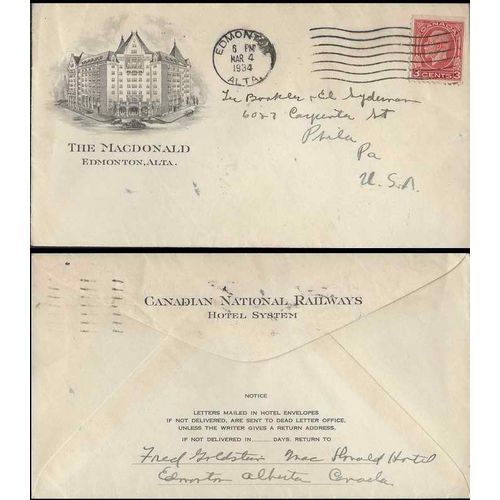 EDMONTON
6 PM
MAR 4
1934
ALTA.
CANADA
3 CENTS 3
THE MACDONALD
EDMONTON, ALTA.
6027 Carpenter St
Phila
Pa
U.S.A.
CANADIAN NATIONAL RAILWAYS
HOTEL SYSTEM
NOTICE
LETTERS MAILED IN HOTEL ENVELOPES
IF NOT DELIVERED, ARE SENT TO DEAD LETTER OFFICE,
UNLESS THE WRITER GIVES A RETURN ADDRESS.
IF NOT DELIVERED IN ...... DAYS, RETURN TO
Fred Goldstein Mac Donald Hotel
Edmonton Alberta Canada